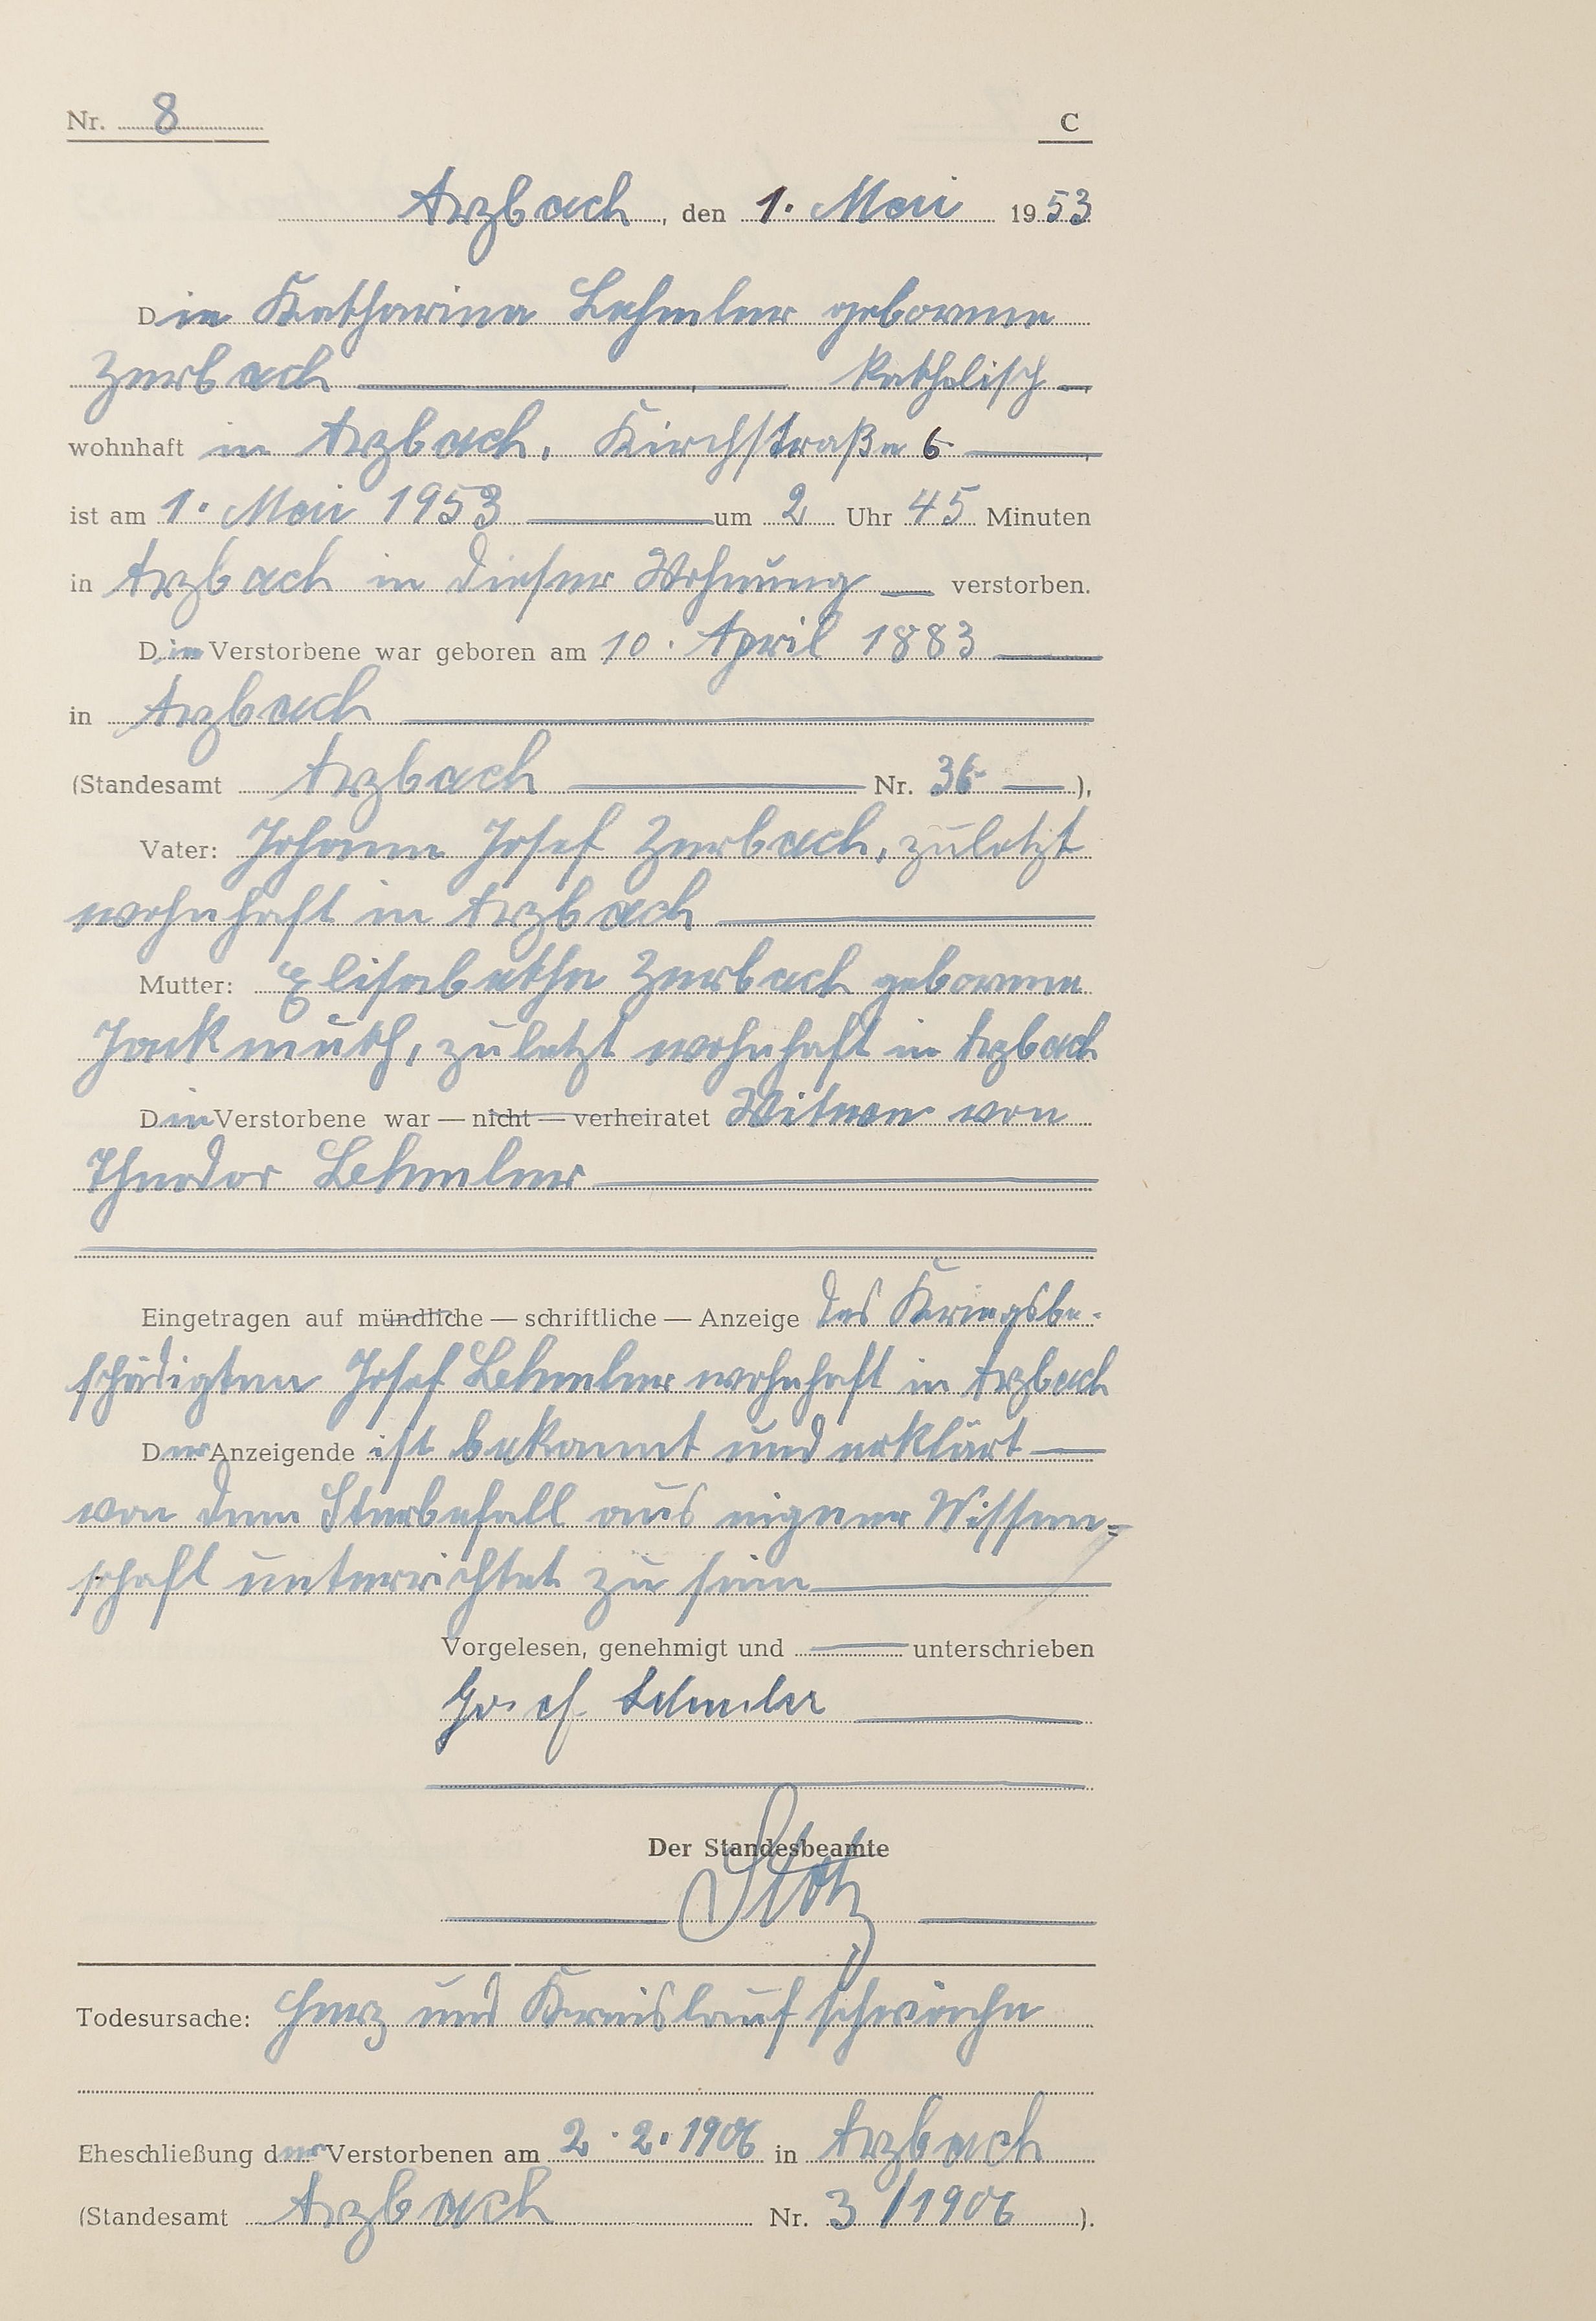 Nr. 8 C
Arzbach, den 1. Mai 1953
Die Katharina Lehmler geborene
Zerbach katholisch
wohnhaft in Arzbach, Kirchstraße 6
ist am 1. Mai 1953 um 2 Uhr 45 Minuten
in Arzbach in dieser Wohnung verstorben.
Die Verstorbene war geboren am 10. April 1883
in Arzbach
(Standesamt Arzbach Nr. 36 ),
Vater: Johann Josef Zerbach, zuletzt
wohnhaft in Arzbach
Mutter: Elisabetha Zerbach geborene
Jackmuth, zuletzt wohnhaft in Arzbach
Die Verstorbene war — nicht — verheiratet Witwe von
Theodor Lehmler
Eingetragen auf mündliche — schriftliche — Anzeige des Kriegsbe-
schädigten Josef Lehmler wohnhaft in Arzbach
Der Anzeigende ist bekannt und erklärt
von dem Sterbefall aus eigener Wissen-
schaft unterrichtet zu sein
Vorgelesen, genehmigt und unterschrieben
Josef Lehmler
Der Standesbeamte
Todesursache: Herz und Kreislaufschwäche
Eheschließung der Verstorbenen am 2. 2. 1906 in Arzbach
(Standesamt Arzbach Nr. 3/1906 ).